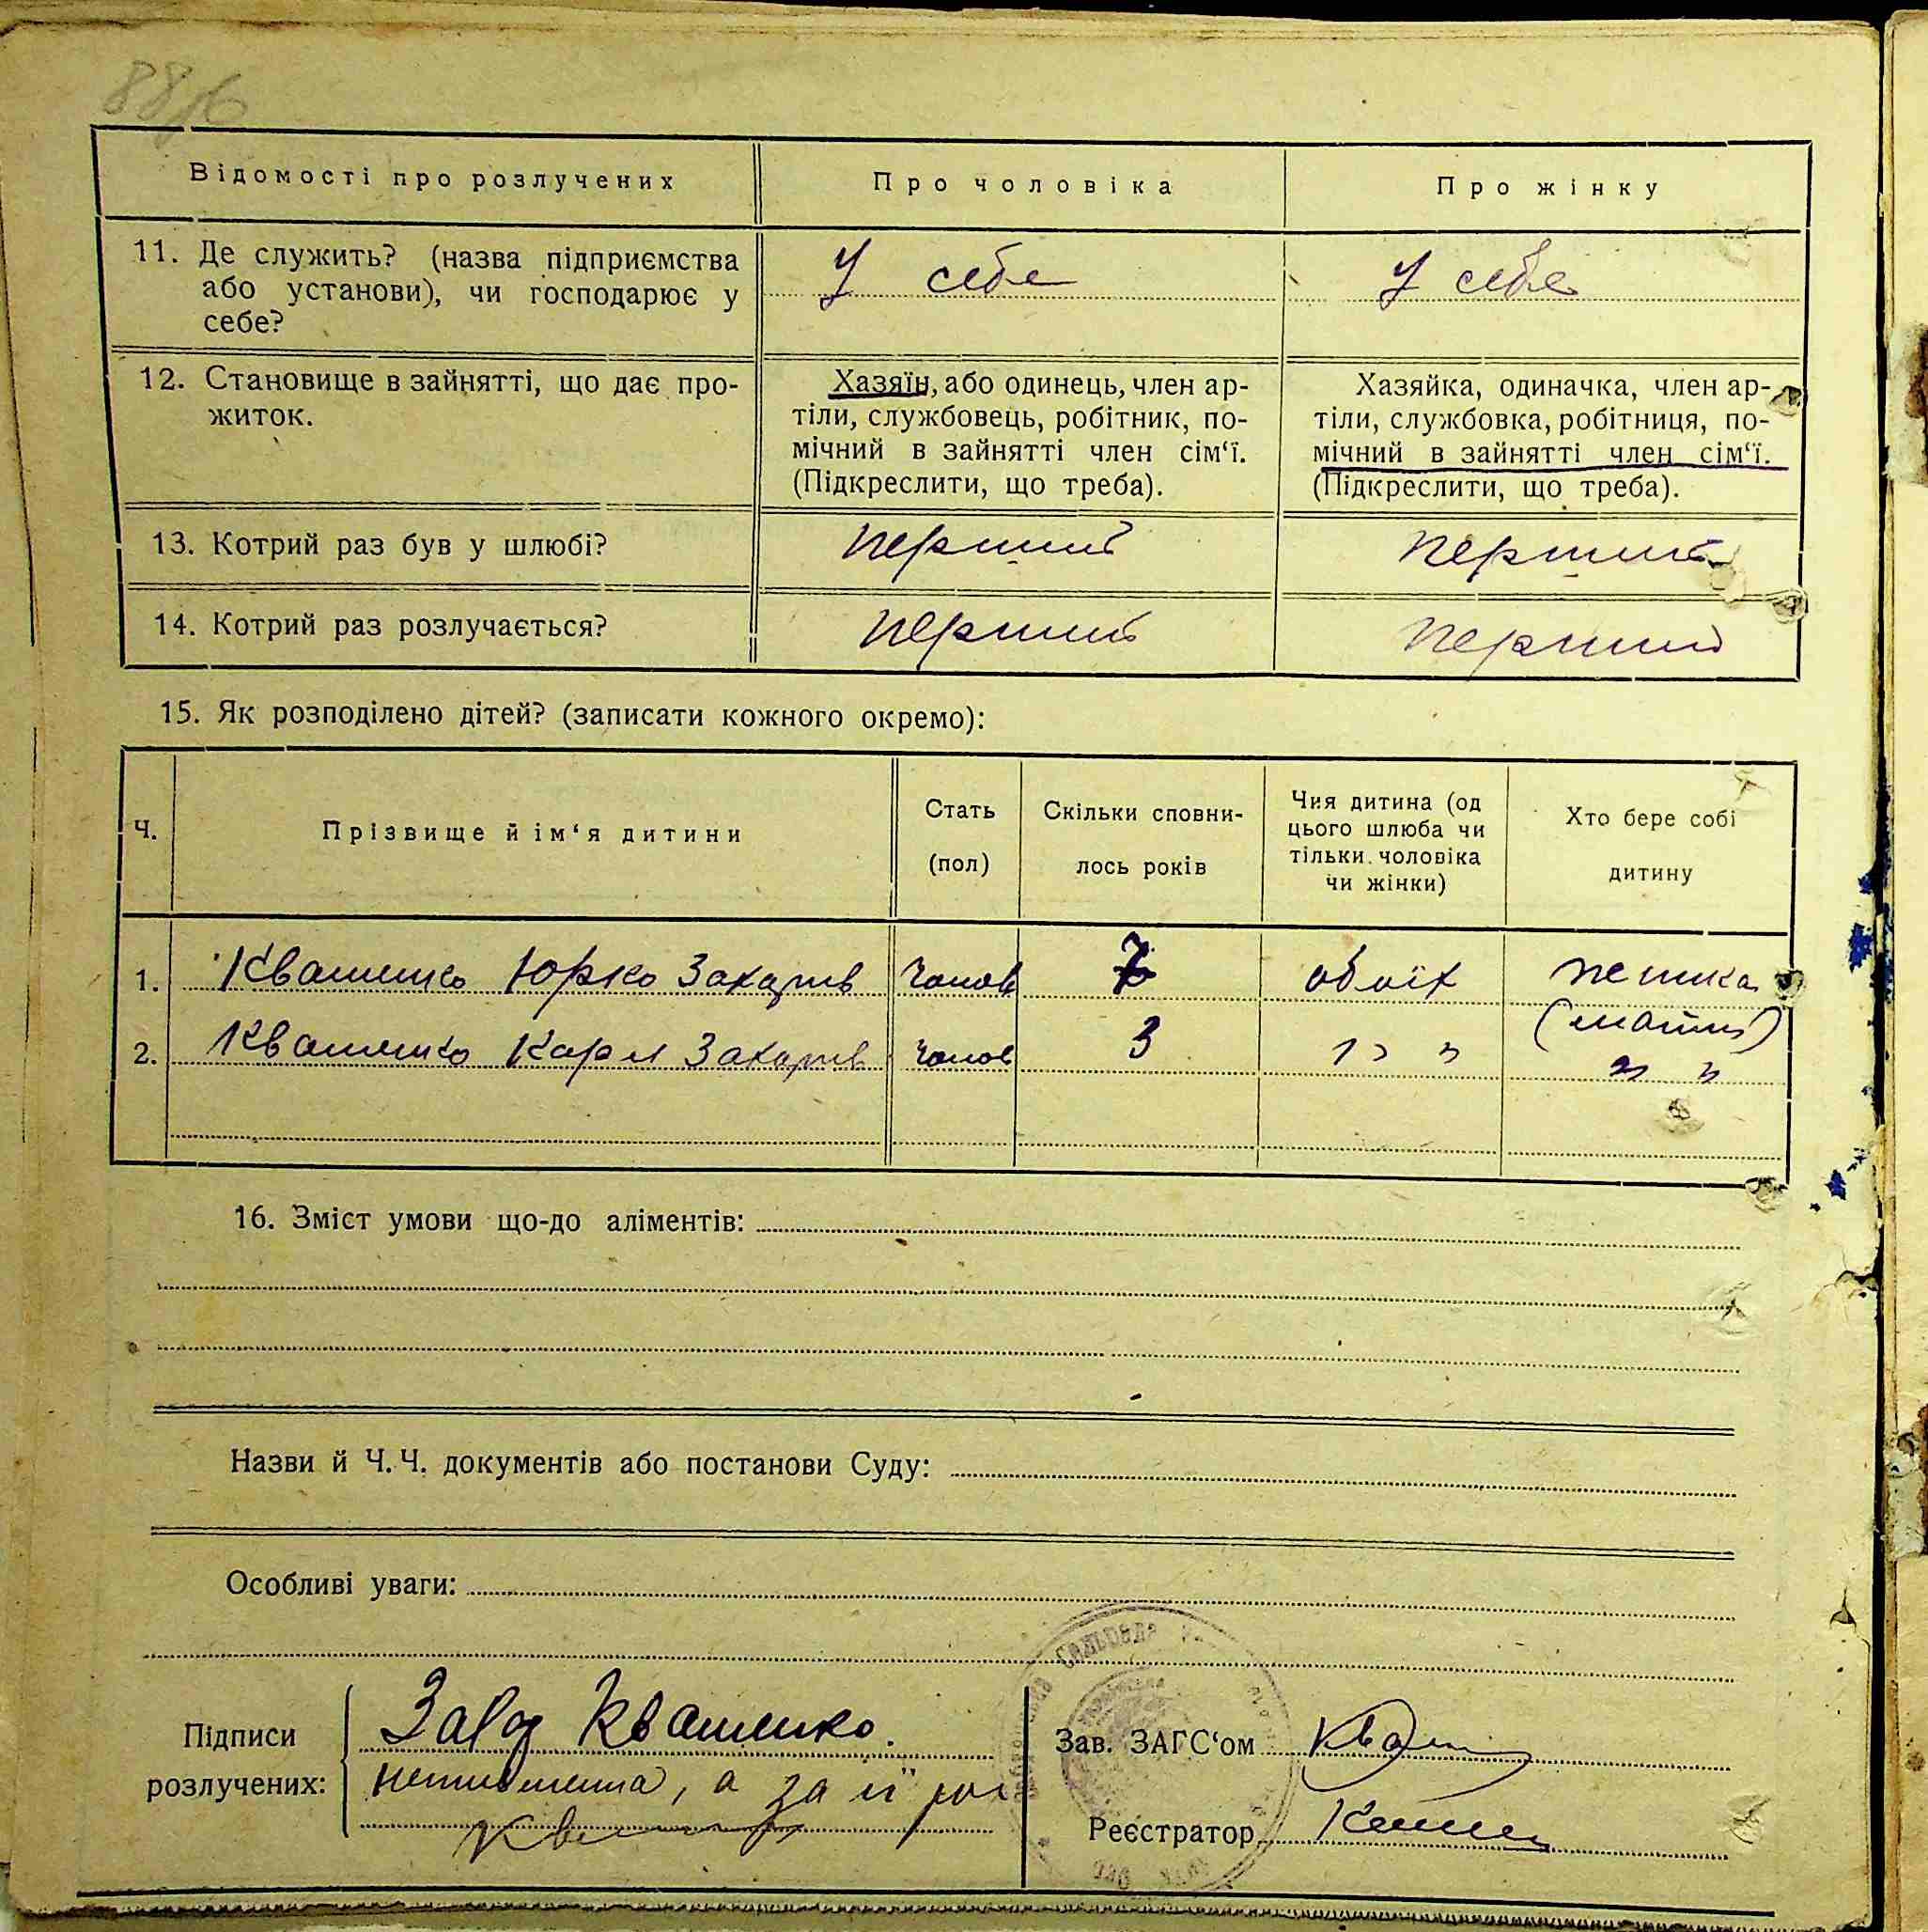 Відомості про розлучених
Про чоловіка
Про жінку
11. Де служить? (назва підприємства
або установи), чи господарює у
себе?
У себе
У себе
12. Становище в зайнятті, що дає про-
житок.
Хазяїн, або одинець, член ар-
тіли, службовець, робітник, по-
мічний в зайнятті член сім‘ї.
(Підкреслити, що треба).
Хазяйка, одиначка, член ар-
тіли, службовка, робітниця, по-
мічний в зайнятті член сім‘ї.
(Підкреслити, що треба).
13. Котрий раз був у шлюбі?
перший
перший
14. Котрий раз розлучається?
перший
перший
15. Як розподілено дітей? (записати кожного окремо):
Ч.
Прізвище й ім‘я дитини
Стать
(пол)
Скільки сповни-
лось років
Чия дитина (од
цього шлюба чи
тільки чоловіка
чи жінки)
Хто бере собі
дитину
1. Квашенко Юрко Захарів чолов 7 обоїх
(мати)
2. Квашенко Карп Захарів чолов 3 " "
" "
16. Зміст умови що-до аліментів:
Назви й Ч.Ч. документів або постанови Суду:
Особливі уваги:
Підписи
розлучених:
Квашенко.
неписьменна, а за її
Зав. ЗАГС‘ом
Реєстратор